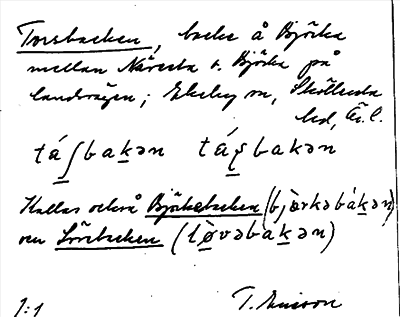 Torsbacken, backe å Björka
mellan Näresta o. Björka på
landsvägen; Ekeby sn, Sköllersta
hd, Ör. l.
tá̱ʃbak̠ən tá̱ʂbakən
Kallas också Björkebacken (bjòrkəbák̠ən)
en Lövebacken (lø̀vəbàk̠ən)
1:1 T. Ericsson